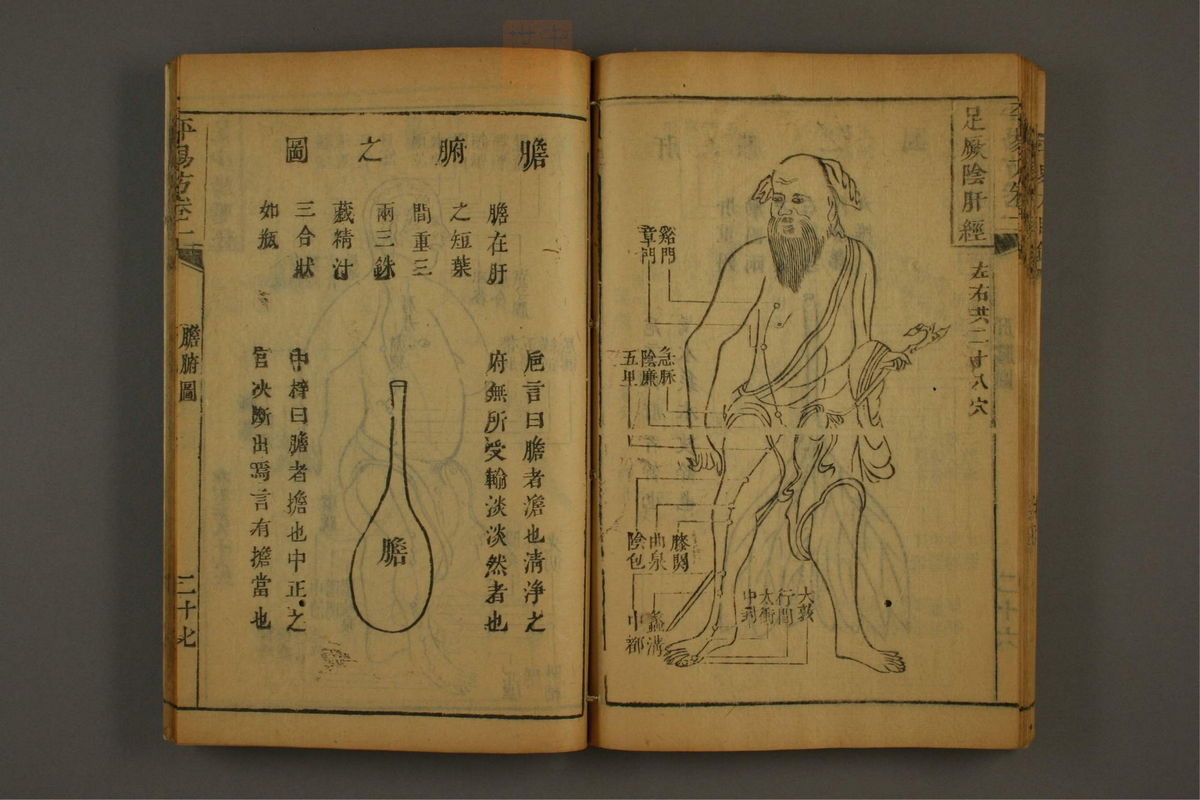 足厥陰肝經
左右共二十八穴
谿門
章門
急脉
陰廉
五里
膝関
曲泉
陰包
蠡溝
中都
大敦
行間
太衝
中封
膽腑之圖
膽在肝
之短葉
間重三
兩三銖
藏精汁
三合狀
如瓶
卮言曰膽者澹也清淨之
府無所受輸淡淡然者也
膽
中梓曰膽者擔也中正之
官决斷出焉言有擔當也
平易方卷二
膽腑圖
二十七